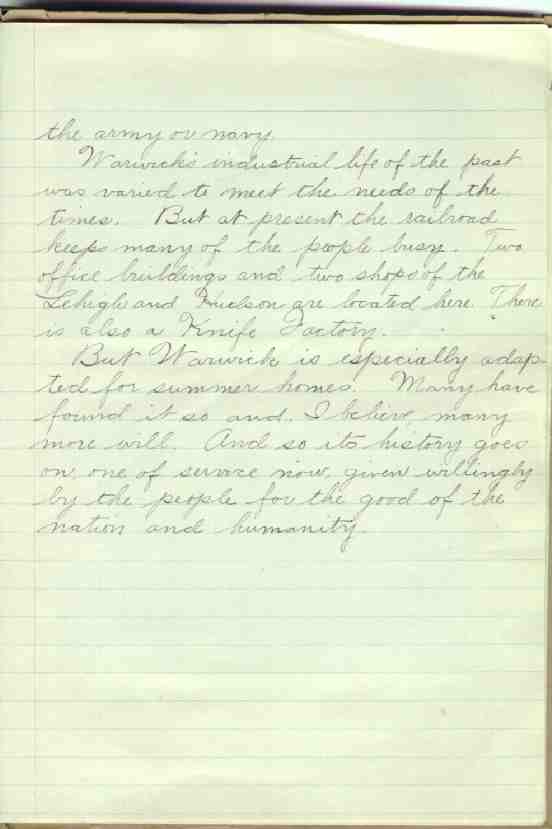 the army or navy.
Warwick's industrial life of the past
was varied to meet the needs of the
times. But at present the railroad
keeps many of the people busy. Two
office buildings and two shops of the
Lehigh and Hudson are located here. There
is also a Knife Factory.
But Warwick is especially adap-
ted for summer homes. Many have
found it so and, I believe, many
more will. And so its history goes
on, one of service now, given willingly
by the people for the good of the
nation and humanity.